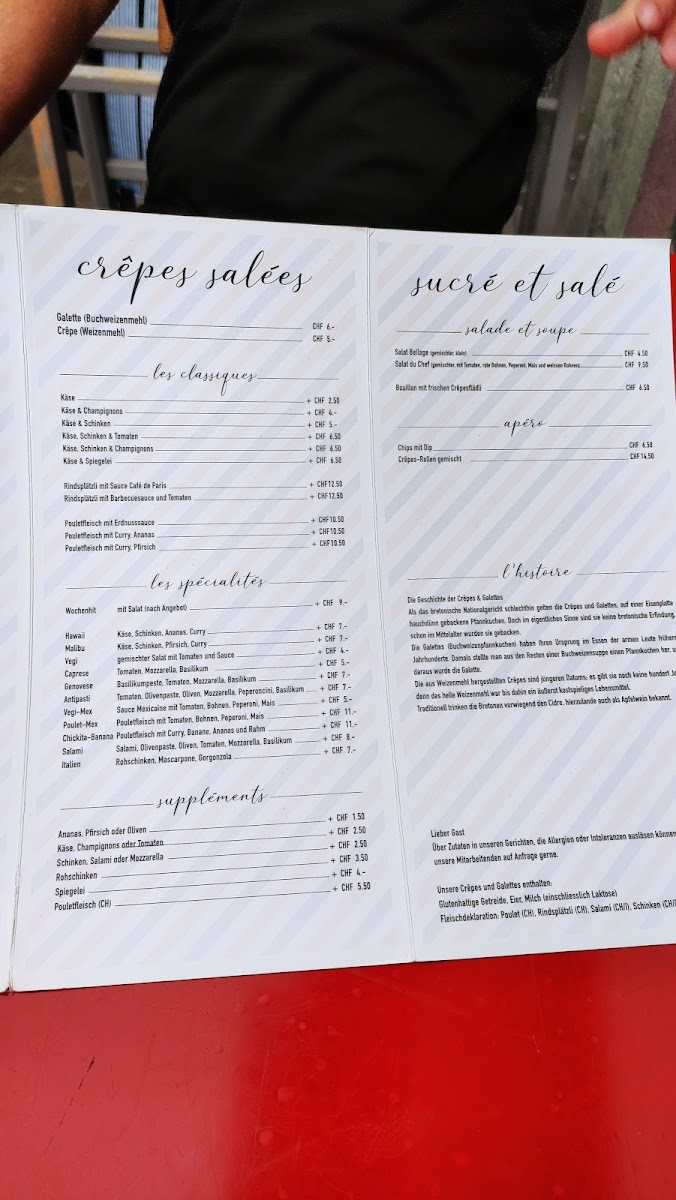 crêpes salées
Galette (Buchweizenmehl) CHF 6.-
Crêpe (Weizenmehl) CHF 5.-
les classiques
Käse + CHF 2.50
Käse & Champignons + CHF 4.-
Käse & Schinken + CHF 5.-
Käse, Schinken & Tomaten + CHF 6.50
Käse, Schinken & Champignons + CHF 6.50
Käse & Spiegelei + CHF 6.50
Rindsplätzli mit Sauce Café de Paris + CHF 12.50
Rindsplätzli mit Barbecuesauce und Tomaten + CHF 12.50
Pouletfleisch mit Erdnusssauce + CHF 10.50
Pouletfleisch mit Curry, Ananas + CHF 10.50
Pouletfleisch mit Curry, Pfirsich + CHF 10.50
les spécialités
Wochenhit mit Salat (nach Angebot) + CHF 9.-
Hawaii Käse, Schinken, Ananas, Curry + CHF 7.-
Malibu Käse, Schinken, Pfirsich, Curry + CHF 7.-
Vegi gemischter Salat mit Tomaten und Sauce + CHF 4.-
Caprese Tomaten, Mozzarella, Basilikum + CHF 5.-
Genovese Basilikumpesto, Tomaten, Mozzarella, Basilikum + CHF 7.-
Antipasti Tomaten, Olivenpaste, Oliven, Mozzarella, Peperoncini, Basilikum + CHF 7.-
Vegi-Mex Sauce Mexicaine mit Tomaten, Bohnen, Peperoni, Mais + CHF 5.-
Poulet-Mex Pouletfleisch mit Tomaten, Bohnen, Peperoni, Mais + CHF 11.-
Chickita-Banana Pouletfleisch mit Curry, Banane, Ananas und Rahm + CHF 11.-
Salami Salami, Olivenpaste, Oliven, Tomaten, Mozzarella, Basilikum + CHF 8.-
Italien Rohschinken, Mascarpone, Gorgonzola + CHF 7.-
suppléments
Ananas, Pfirsich oder Oliven + CHF 1.50
Käse, Champignons oder Tomaten + CHF 2.50
Schinken, Salami oder Mozzarella + CHF 2.50
Rohschinken + CHF 3.50
Spiegelei + CHF 4.-
Pouletfleisch (CH) + CHF 5.50
sucré et salé
salade et soupe
Salat Beilage (gemischter, klein) CHF 4.50
Salat du Chef (gemischter, mit Tomaten, rote Bohnen, Peperoni, Mais und weissen Bohnen) CHF 9.50
Bouillon mit frischen Crêpesflädli CHF 6.50
apéro
Chips mit Dip CHF 6.50
Crêpes-Rollen gemischt CHF 14.50
l'histoire
Die Geschichte der Crêpes & Galettes
Als das bretonische Nationalgericht schlechthin gelten die Crêpes und Galettes, auf einer Eisenplatte
hauchdünn gebackene Pfannkuchen. Doch im eigentlichen Sinne sind sie keine bretonische Erfindung,
schon im Mittelalter wurden sie gebacken.
Die Galettes (Buchweizenpfannkuchen) haben Ihren Ursprung im Essen der armen Leute frühere
Jahrhunderte. Damals stellte man aus den Resten einer Buchweizensuppe einen Pfannkuchen her, u
daraus wurde die Galette.
Die aus Weizenmehl hergestellten Crêpes sind jüngeren Datums; es gibt sie noch keine hundert Ja
denn das helle Weizenmehl war bis dahin ein äußerst kostspieliges Lebensmittel.
Traditionell trinken die Bretonen vorwiegend den Cidre, hierzulande auch als Apfelwein bekannt.
Lieber Gast
Über Zutaten in unseren Gerichten, die Allergien oder Intoleranzen auslösen können
unsere Mitarbeitenden auf Anfrage gerne.
Unsere Crêpes und Galettes enthalten:
Glutenhaltige Getreide, Eier, Milch (einschliesslich Laktose)
Fleischdeklaration: Poulet (CH), Rindsplätzli (CH), Salami (CH/I), Schinken (CH/